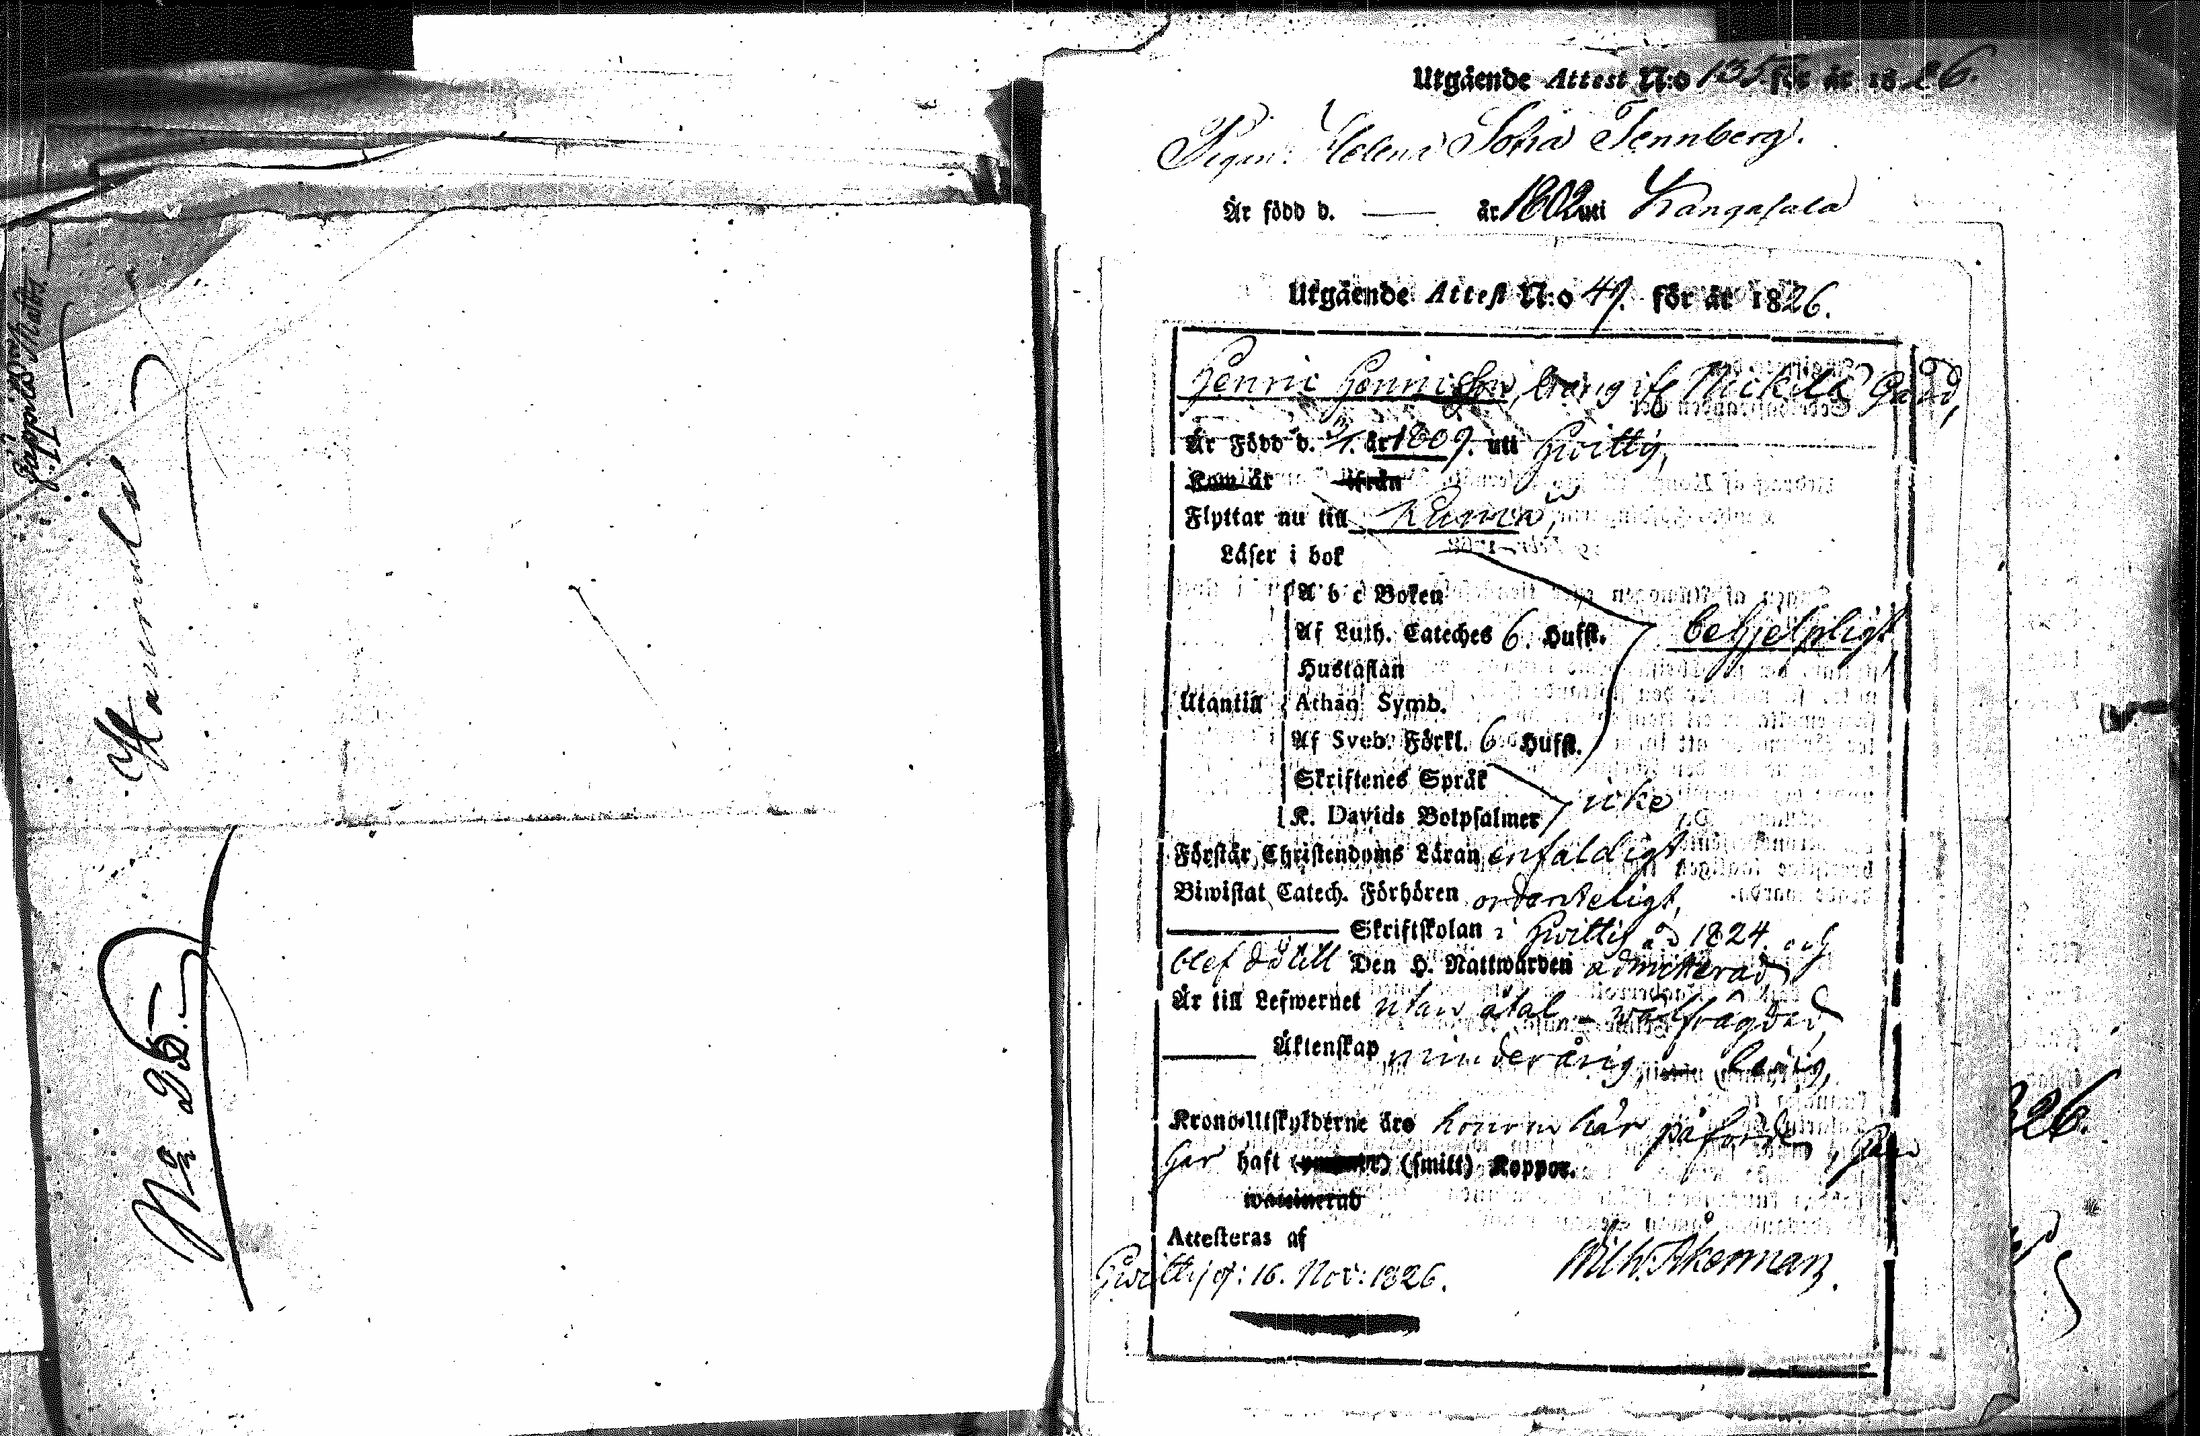 Harmula
No 25.
Utgående Attest N:o 135 för år 1826.
Pigan Helena Sofia Tennberg.
Är född d. —— år 1802 uti Kangasala
Utgående Attest N:o 49. för år 1826.
Henric Henricsson, dräng ifr Mickila Gård,
Är Född d. år 1809. uti Hvittis,
Kom år ifrån
Flyttar nu till Kumo,
Läser i bok
A b c Boken
Af Luth. Cateches 6. Hufst. behjelpligt,
Hustaflan
Utantill Athan Symb.
Af Sveb. Förkl. 6 Hufst.
Skriftenes Språk
icke
K. Davids Botpsalmer
Förstår Christendoms Läran enfaldigt,
Biwistat Catech. Förhören ordenteligt,
—— Skriftskolan i Hvittis åd 1824. och
blef då till Den H. Nattwarden admitterad
Är till Lefwernet utan åtal – wälfrägdad,
—— Äktenskap minderårig, ledig,
Krono-Utskylderne äro honom här påförde,
Har haft (smitt) Koppor.
waccinerad
Attesteras af
Hvittis d: 16. Nov: 1826. Wilh. Åkerman.
26.